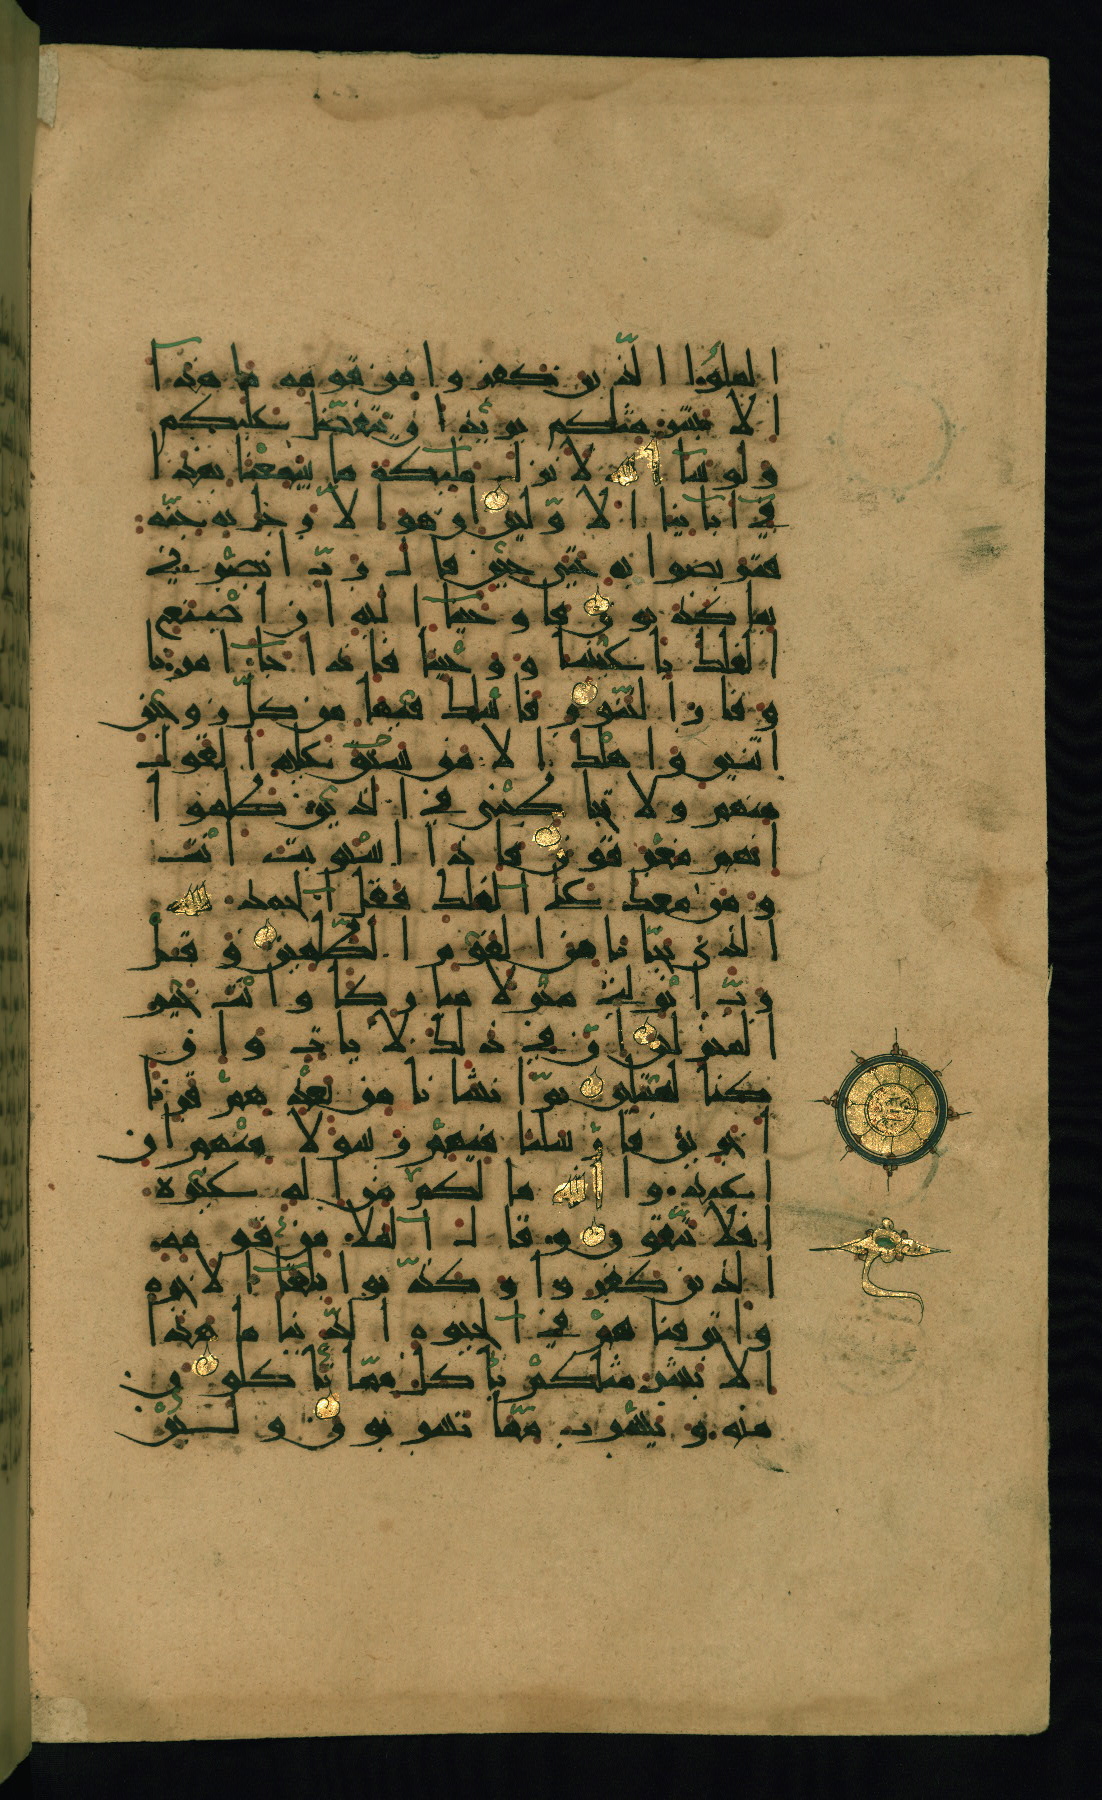 الملؤا الذين كفروا من قومه ما هذا
الا بشر مثلكم يريد ان يتفضل عليكم
ولو شا الله لانزل مليكة ما سمعنا بهذا
في ابائنا الاولين ان هو الا رجل به جنة
فتربصوا به حتى حين قال رب انصرني
بما كذبون فاوحينا اليه ان اصنع
الفلك باعيننا ووحينا فاذا جا امرنا
وفار التنور فاسلك فيها من كل زوجين
اثنين واهلك الا من سبق عليه القول
منهم ولا تخاطبني في الذين ظلموا
انهم مغرقون فاذا استويت انت
ومن معك على الفلك فقل الحمد لله
الذي نجينا من القوم الظلمين وقل
رب انزلني منزلا مباركا وانت خير
المنزلين ان في ذلك لايات وان
كنا لمبتلين ثم انشانا من بعدهم قرنا
اخرين فارسلنا فيهم رسولا منهم ان
اعبدوا الله ما لكم من اله غيره
افلا تتقون وقال الملا من قومه
الذين كفروا وكذبوا بلقا الاخرة
واترفناهم في الحيوة الدنيا ما هذا
الا بشر مثلكم ياكل مما تاكلون
منه ويشرب مما تشربون ولئن